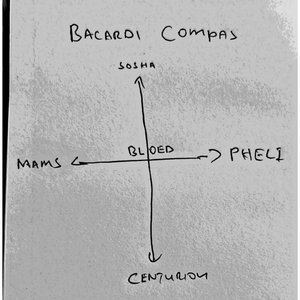 BACARDI COMPAS
SOSHA
BLOED
MAMS
PHELI
CENTURION